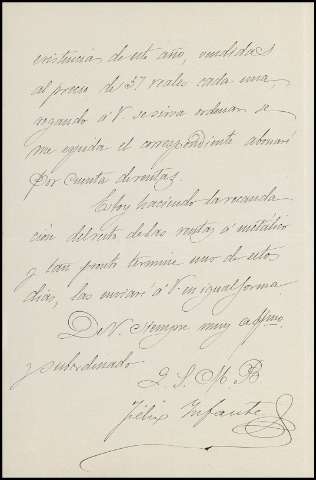 existencia de este año, vendidas
al precio de 37 reales cada una,
rogando á V. se sirva ordenar se
me expida el correspondiente abonaré
por cuenta de rentas.
Estoy haciendo la recauda
ción del resto de las rentas á metálico
y tan pronto termine uno de estos
dias, las enviaré á V. en igual forma
De V. siempre muy affmo.
y subordinado
Q. S. M. B.
Félix Infante